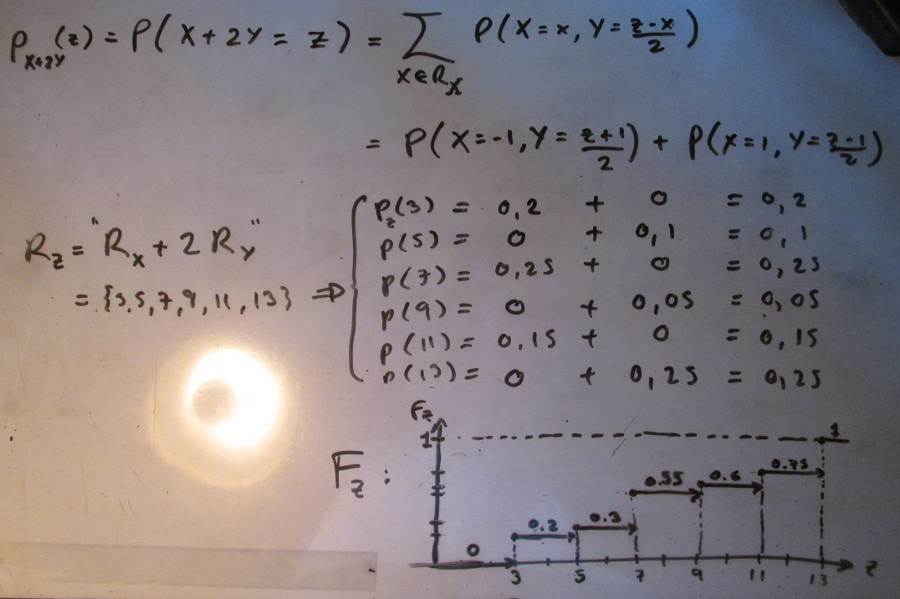 P_{X+2Y}(z) = P(X+2Y = z) = ∑_{x∈R_X} P(X=x, Y=\frac{z-x}{2})
= P(X=-1, Y=\frac{z+1}{2}) + P(X=1, Y=\frac{z-1}{2})
R_z = "R_X + 2R_Y"
= {3,5,7,9,11,13} ⇒
P_z(3) = 0,2 + 0 = 0,2
P(5) = 0 + 0,1 = 0,1
P(7) = 0,25 + 0 = 0,25
P(9) = 0 + 0,05 = 0,05
P(11) = 0,15 + 0 = 0,15
P(13) = 0 + 0,25 = 0,25
F_z :
F_z
1
1
0 0.2 0.3 0.55 0.6 0.75
3 5 7 9 11 13 z